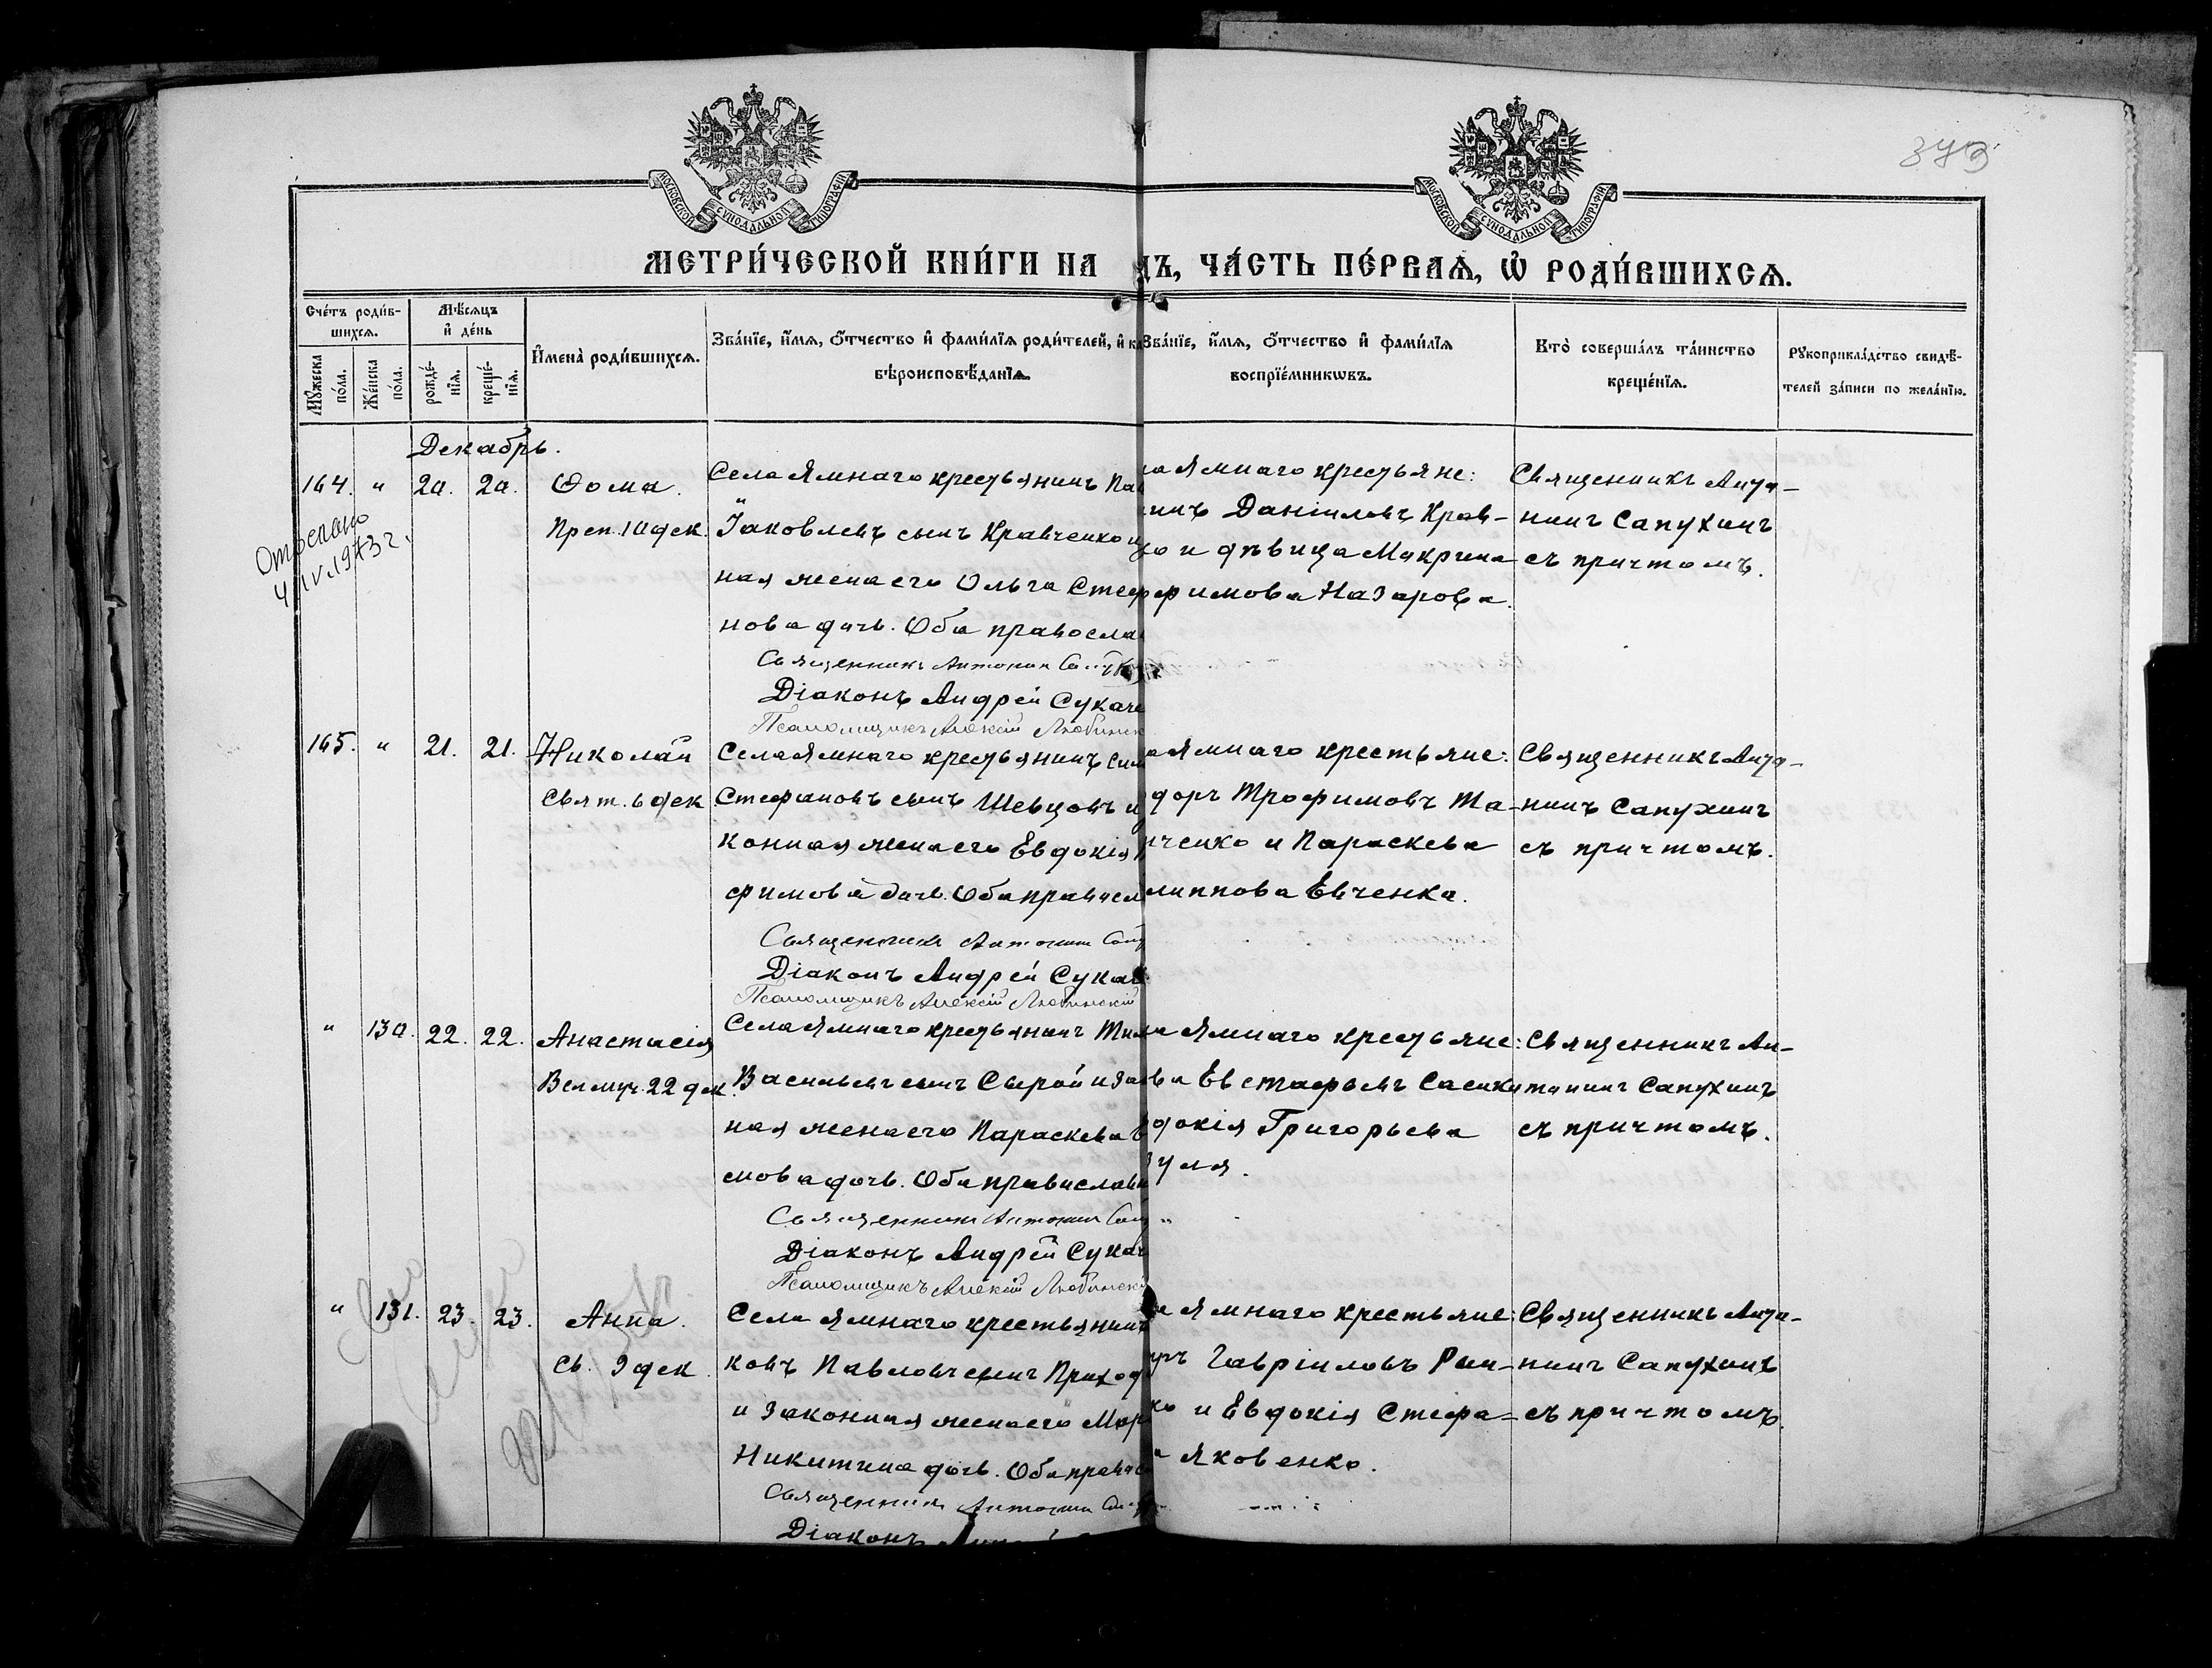 379
МОСКОВСКОЙ СѴНОДАЛЬНОЙ ТИПОГРАФІИ
МОСКОВСКОЙ СѴНОДАЛЬНОЙ ТИПОГРАФІИ
МЕТРИ́ЧЕСКОЙ КНИ́ГИ НА ДЪ, ЧА́СТЬ ПЕ́РВАѦ, Ѡ҆ РОДИ́ВШИХСѦ.
Сче́тъ роди́в-
шихсѧ.
Мꙋ́жеска по́ла.
Же́нска по́ла.
Мѣ́сѧцъ
и҆ де́нь
рожде́-
нїѧ.
креще́-
нїѧ.
И҆мена̀ роди́вшихсѧ.
Зва́нїе, и҆́мѧ, ѻ҆́тчество и҆ фами́лїѧ роди́телей, и҆ ка
вѣроисповѣ́данїѧ.
Зва́нїе, и҆́мѧ, ѻ҆́тчество и҆ фами́лїѧ
воспрїе́мникѡвъ.
Кто̀ соверша́лъ та́инство
креще́нїѧ.
Рꙋкоприкла́дство свидѣ́-
телей за́писи по жела́нїю.
Декабрь.
164. " 20. 20.
Ѳома.
Преп. 10 дек.
Отослано
4/IV 1973 г.
Села Ямнаго крестьянинъ Пав
Іаковлевъ сынъ Кравченко и
ная жена его Ольга Стеф
нова дочь. Оба правосла
Священникъ Антонин Сапу
Діаконъ Андрей Сукаче
Псаломщикъ Алексій Любинск
ла Ямнаго крестьяне:
нинъ Даніиловъ Крав-
ко и дѣвица Макрина
фимова Назарова.
Священникъ Анто-
нинъ Сапухинъ
съ причтомъ.
165. " 21. 21.
Николай
Свят. 6 дек.
Села Ямнаго крестьянинъ Сим
Стефановъ сынъ Шевцовъ и
конная жена его Евдокія
фимова дочь. Оба правосл
Священникъ Антонин Сапу
Діаконъ Андрей Сукач
Псаломщикъ Алексій Любинскій
а Ямнаго крестьяне:
доръ Трофимовъ Та-
нченко и Параскева
липпова Евченка.
Священникъ Анто-
нинъ Сапухинъ
съ причтомъ.
" 130. 22. 22.
Анастасія
Велмуч. 22 дек.
Села Ямнаго крестьянинъ Тим
Васильевъ сынъ Сырой и зак
ная жена его Параскева
мова дочь. Оба православн
Священникъ Антонин Сапу
Діаконъ Андрей Сукач
Псаломщикъ Алексій Любинскі
ла Ямнаго крестьяне:
ва Евстафьевъ Сасик
докія Григорьева
зуля.
Священникъ Ан-
тонинъ Сапухинъ
съ причтомъ.
" 131. 23. 23.
Анна.
Св. 9 дек.
Села Ямнаго крестьянинъ
ковъ Павловъ сынъ Приход
и законная жена его Мар
Никитина дочь. Оба правос
Священникъ Антонин Сапу
Діаконъ
ла Ямнаго крестьяне:
ръ Гавріиловъ Рин-
ко и Евдокія Стефа-
а Яковенко.
Священникъ Анто-
нинъ Сапухинъ
съ причтомъ.